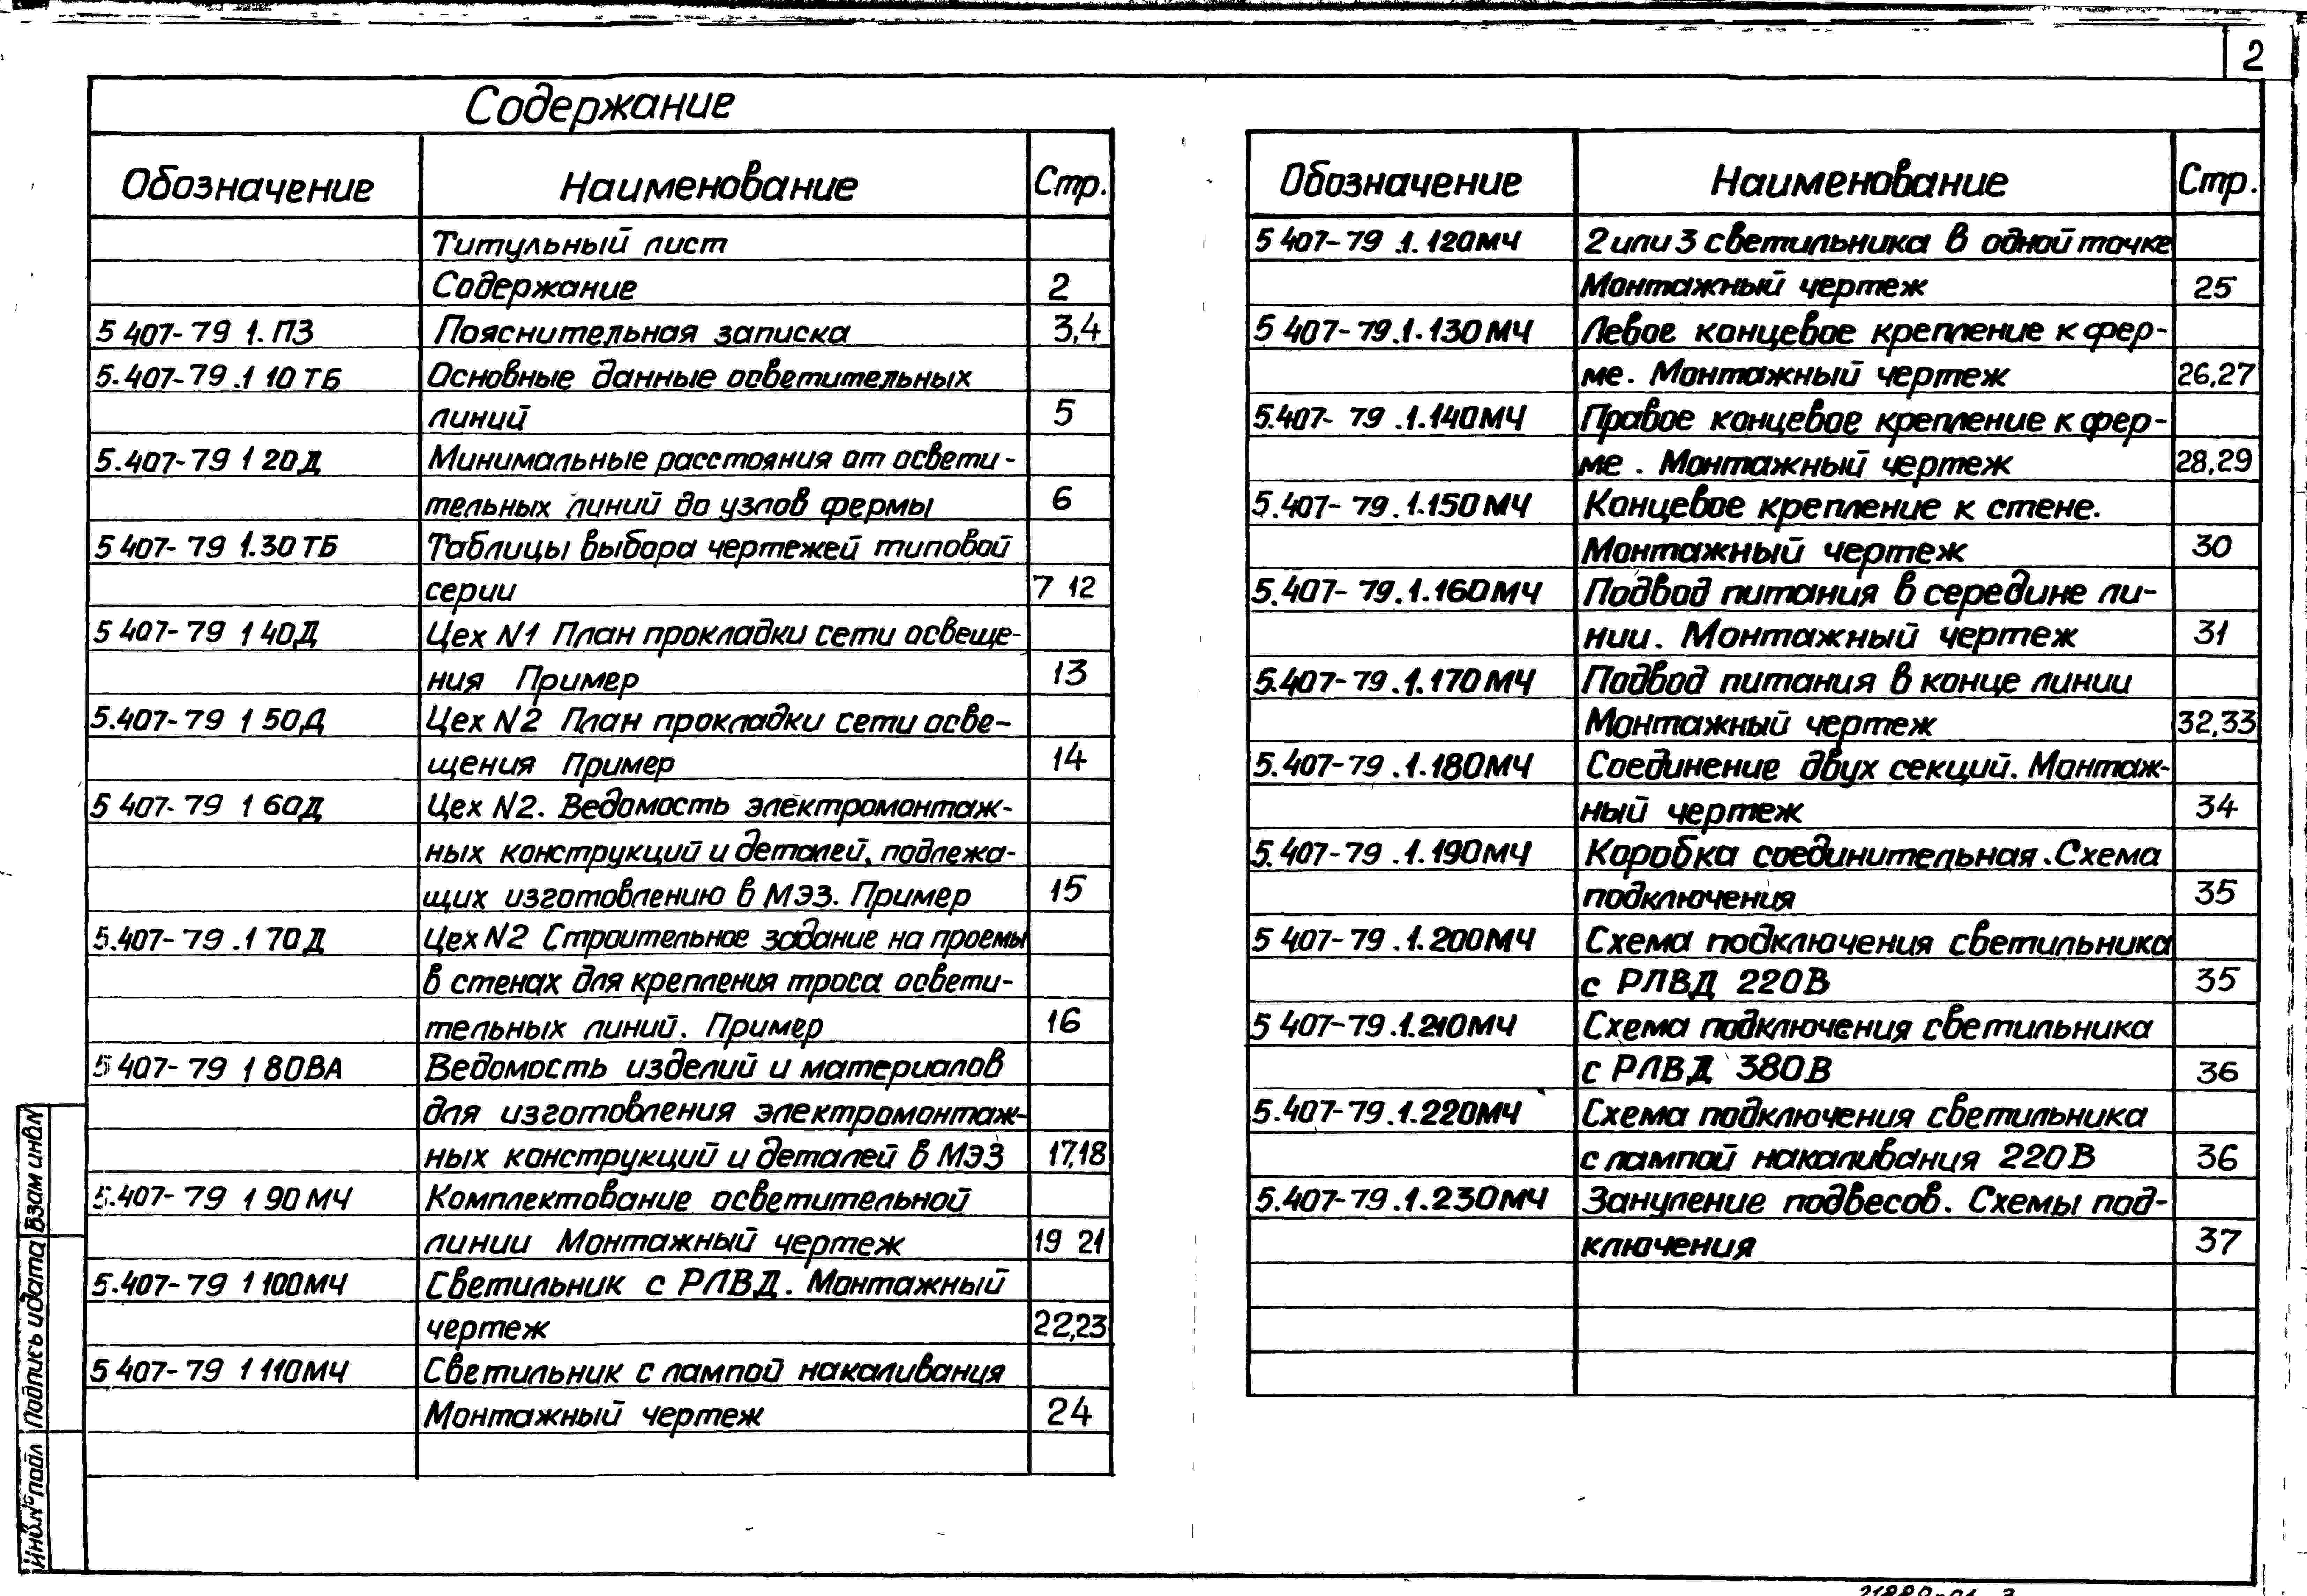 2
Содержание
Обозначение Наименование Стр.
Титульный лист
Содержание 2
5 407-79 1.ПЗ Пояснительная записка 3,4
5.407-79.1 10ТБ Основные данные осветительных
линий 5
5.407-79 1 20Д Минимальные расстояния от освети-
тельных линий до узлов фермы 6
5 407-79 1.30ТБ Таблицы выбора чертежей типовой
серии 7 12
5 407-79 1 40Д Цех N1 План прокладки сети освеще-
ния Пример 13
5.407-79 1 50Д Цех N2 План прокладки сети осве-
щения Пример 14
5 407-79 1 60Д Цех N2. Ведомость электромонтаж-
ных конструкций и деталей, подлежа-
щих изготовлению в МЭЗ. Пример 15
5.407-79.1 70Д Цех N2 Строительное задание на проемы
в стенах для крепления троса освети-
тельных линий. Пример 16
5 407-79 1 80ВА Ведомость изделий и материалов
для изготовления электромонтаж-
ных конструкций и деталей в МЭЗ 17,18
5.407-79 1 90МЧ Комплектование осветительной
линии Монтажный чертеж 19 21
5.407-79 1 100МЧ Светильник с РЛВД. Монтажный
чертеж 22,23
5 407-79 1 110МЧ Светильник с лампой накаливания
Монтажный чертеж 24
Обозначение Наименование Стр.
5 407-79.1.120МЧ 2 или 3 светильника в одной точке
Монтажный чертеж 25
5 407-79.1.130МЧ Левое концевое крепление к фер-
ме. Монтажный чертеж 26,27
5.407-79.1.140МЧ Правое концевое крепление к фер-
ме. Монтажный чертеж 28,29
5.407-79.1.150МЧ Концевое крепление к стене.
Монтажный чертеж 30
5.407-79.1.160МЧ Подвод питания в середине ли-
нии. Монтажный чертеж 31
5.407-79.1.170МЧ Подвод питания в конце линии
Монтажный чертеж 32,33
5.407-79.1.180МЧ Соединение двух секций. Монтаж-
ный чертеж 34
5.407-79.1.190МЧ Коробка соединительная. Схема
подключения 35
5 407-79.1.200МЧ Схема подключения светильника
с РЛВД 220В 35
5 407-79.1.210МЧ Схема подключения светильника
с РЛВД 380В 36
5.407-79.1.220МЧ Схема подключения светильника
с лампой накаливания 220В 36
5.407-79.1.230МЧ Зануление подвесов. Схемы под-
ключения 37
Инв.№ подл Подпись и дата Взам инв N